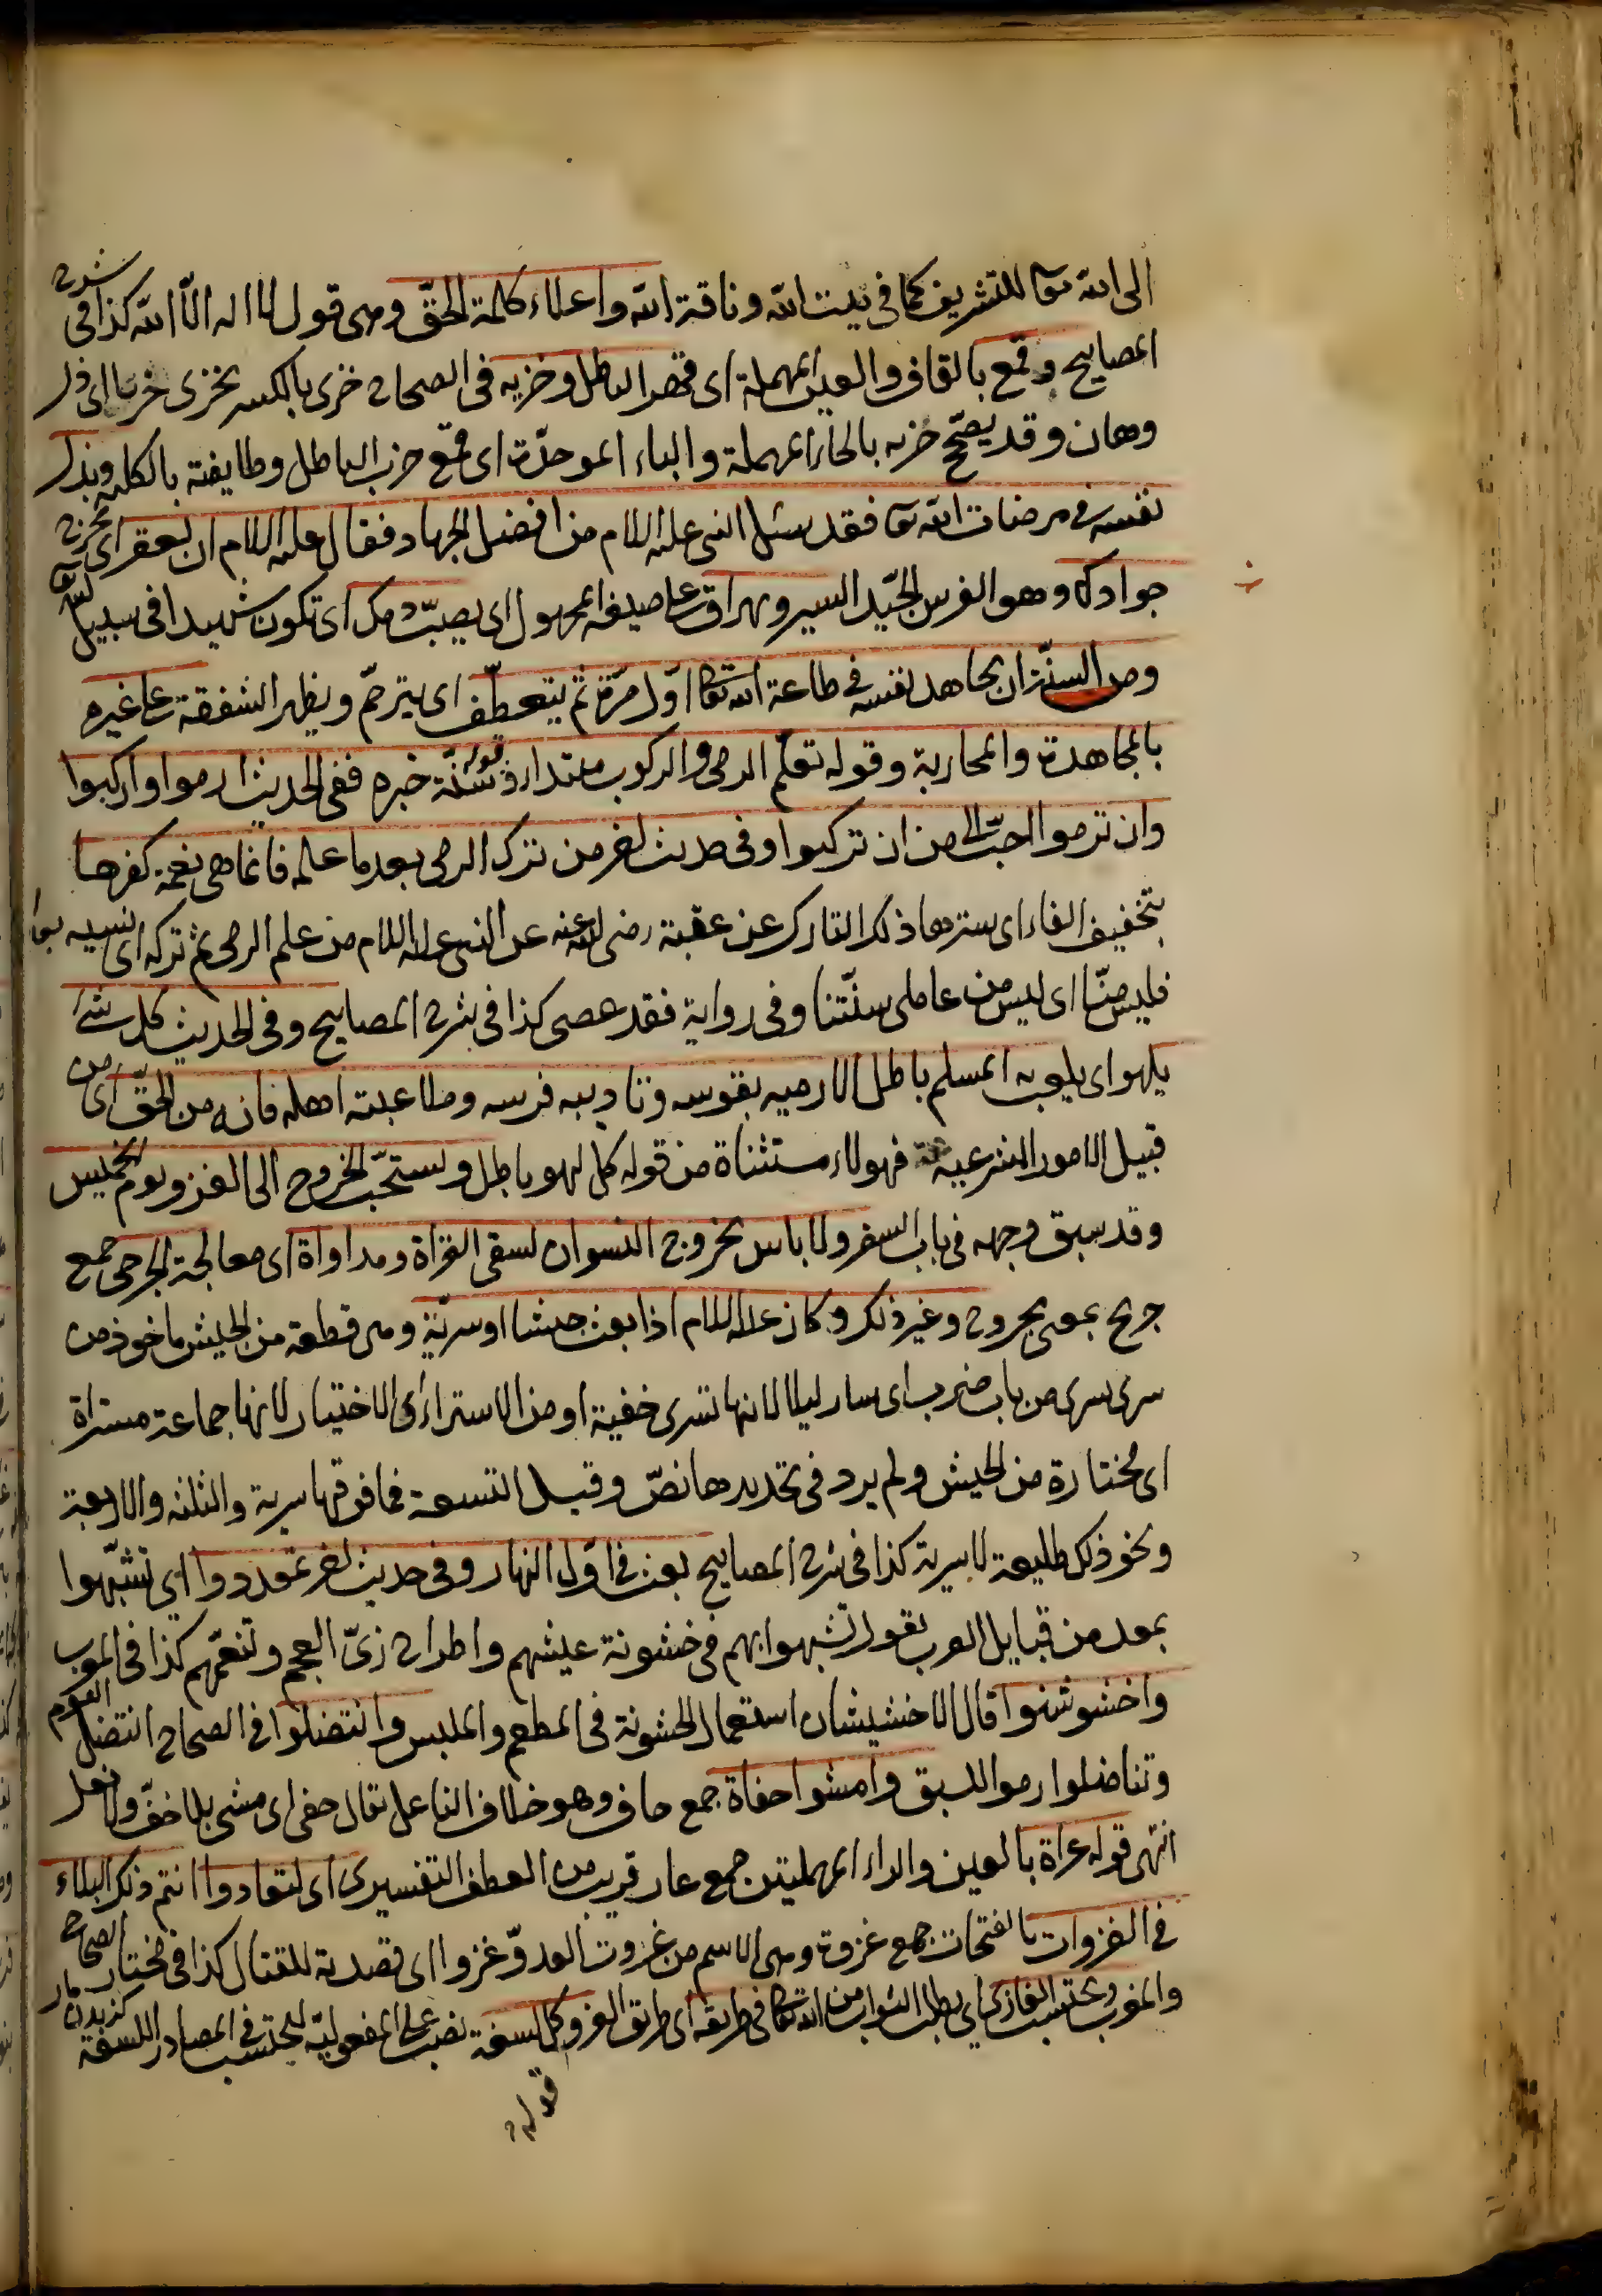 الى الله تعا للتشريف كما في بيت الله وناقة الله واعلاء كلمة الحقّ وهي قول لا اله الّا الله كذا في شرح
المصابيح وقمع بالقاف والعين المهملة اى قهر الباطل وخزيه في الصحاح خزى بالكسر يخزى خزيا اى ذل
وهان وقد يصحّح حزبه بالحاء المهملة والباء الموحدة اى قمع حزب الباطل وطايفته بالكلية وبذل
نفسه في مرضات الله تعا فقد سئل النبى عليه اللام من افضل الجهاد فقال عليه اللام ان يعقر اى يجرح
جوادك وهو الفرس الجيّد السير ويهراق على صيغة المجهول اى يصبّ دمك اى تكون شهيدا في سبيل الله تعا
ومن السنّة ان يجاهد نفسه في طاعة الله تعالى اوّل مرّة ثم يتعطّف اى يترحّم ويظهر الشفقة على غيره
بالمجاهدة والمحاربة وقوله تعلّم الرمى والركوب مبتدا وقوله سُنّة خبره ففي الحديث ارموا واركبوا
وان ترموا احبّ الى من ان تركبوا وفي حديث اخر من ترك الرمى بعد ما علمه فانما هي نعمة كفرها
بتخفيف الفاء اى سترها ذلك التارك عن عقبة رضى الله عنه عن النبى عليه اللام من علم الرمى ثم تركه اى نسيه
فليس منّا اى ليس من عاملى سنّتنا وفي رواية فقد عصى كذا في شرح المصابيح وفي الحديث كل شئ
يلهو اى يلعب به المسلم باطل الا رميه بقوسه وتاديبه فرسه وملاعبته اهله فانه من الحقّ اى من
قبيل الامور الشرعية فهولاء مستثناة من قوله كل لهو باطل ويستحبّ الخروج الى الغزو يوم الخميس
وقد سبق وجهه في باب السفر ولا باس بخروج النسوان لسقى الغزاة ومداواة اى معالجة الجرحى جمع
جريح بمعنى مجروح وغير ذلك وكان عليه اللام اذا بعث جيشا او سريّة وهي قطعة من الجيش ماخوذ من
سرى يسرى من باب ضرب اى سار ليلا لانها تسرى خفية او من الاستراء اى الاختيار لانها جماعة مستراة
اى مختارة من الجيش ولم يرد في تحديدها نصّ وقيل التسعة فما فوقها سرية والثلثة والاربعة
ونحو ذلك طليعة لا سرية كذا في شرح المصابيح بعث في اوّل النهار وفي حديث اخر تمعددوا اى تشبّهوا
بمعد من قبايل العرب يقول تشبهوا بهم في خشونة عيشهم واطراح زىّ العجم وتنعّمهم كذا في المغرب
واخشوشنوا قال الاخشيشان استعمال الخشونة في المطعم والملبس وانتضلوا في الصحاح انتضل القوم
وتناضلوا رموا للسبق وامشوا حفاة جمع حاف وهو خلاف الناعل يقال حفى اى مشى بلا خفّ ولا نعل
انتهى قوله عراة بالعين والراء المهملتين جمع عار قريب من العطف التفسيرى اى لتعادوا انتم ذلك البلاء
في الغزوات بالفتحات جمع غزوة وهي الاسم من غزوت العدوّ غزوا اى قصدته للقتال كذا في مختار الصحاح
والمغرب ويحتسب الغازى اى يطلب الثواب من الله تعالى في طريقه اى طريق الغزو كل لسغة نصب على المفعوليّة ليحتسب في المصادر اللسغة كزيدن مار
قوله